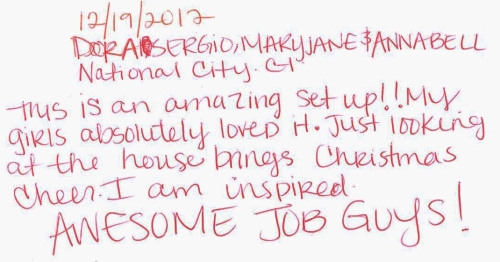 12/19/2012
DORA SERGIO, MARYJANE & ANNABELL
National City. CA
This is an amazing set up!! My
girls absolutely loved it. Just looking
at the house brings Christmas
Cheer. I am inspired.
AWESOME JOB GUYS!